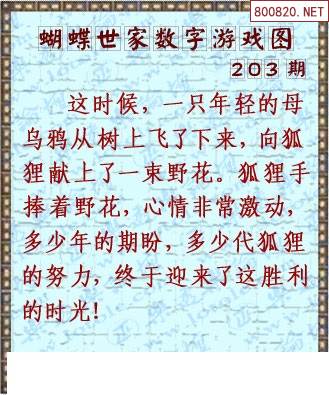 800820.NET
蝴蝶世家数字游戏图
203 期
这时候，一只年轻的母
乌鸦从树上飞了下来，向狐
狸献上了一束野花。狐狸手
捧着野花，心情非常激动，
多少年的期盼，多少代狐狸
的努力，终于迎来了这胜利
的时光！